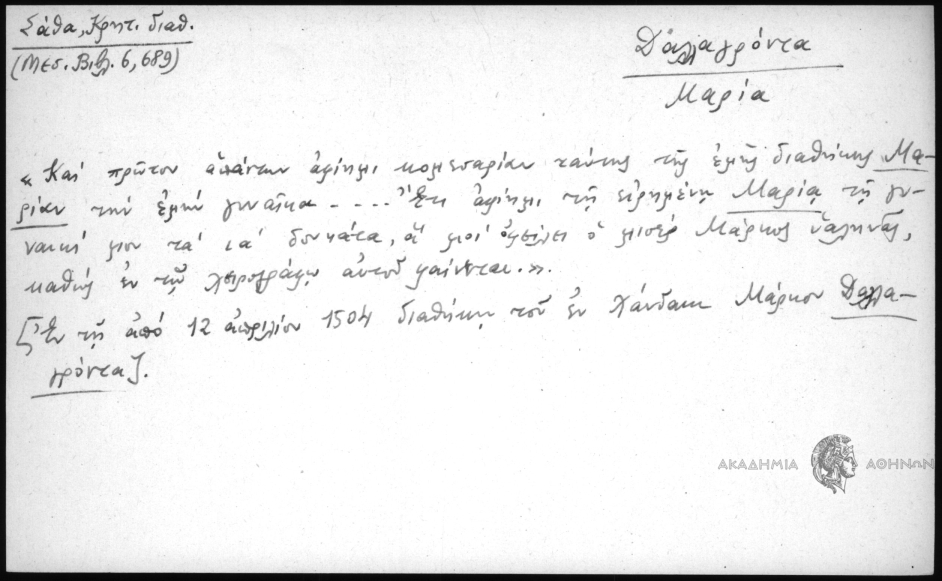 Σάθα, Κρητ. διαθ.
(Μεσ. Βιβλ. 6, 689)
Δαλλαγρόντα
Μαρία
« Καὶ πρῶτον ἁπάντων ἀφίημι κομεσαρίαν ταύτης τῆς ἐμῆς διαθήκης Μα-
ρίαν τὴν ἐμὴν γυναῖκα - - - . . Ἔτι ἀφίημι τῇ εἰρημένῃ Μαρίᾳ τῇ γυ-
ναικί μου τὰ ια΄ δουκάτα, ἅ μοι ὀφείλει ὁ μισὲρ Μάρκος
καθὼς ἐν τῷ χειρογράφῳ αὐτοῦ φαίνεται. ».
[Ἐν τῇ ἀπὸ 12 ἀπριλίου 1504 διαθήκῃ τοῦ ἐν Χάνδακι Μάρκου Δαλλα-
γρόντα].
ΑΚΑΔΗΜΙΑ ΑΘΗΝΩΝ